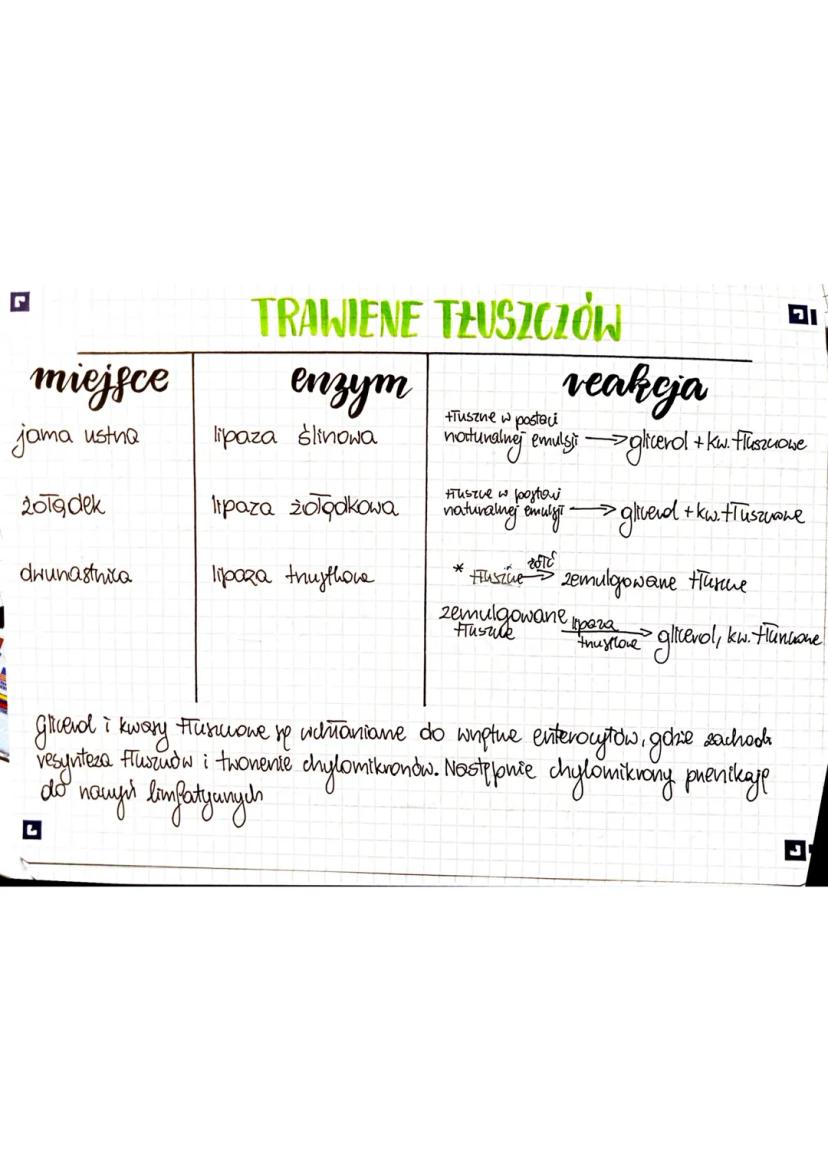 TRAWIENE TŁUSZCZÓW
miejsce enzym reakcja
jama ustna lipaza ślinowa tłuszcze w postaci naturalnej emulsji → glicerol + kw. tłuszczowe
żołądek lipaza żołądkowa tłuszcze w postaci naturalnej emulsji → glicerol + kw. tłuszczowe
dwunastnica lipaza trzustkowa * tłuszcze żółć → zemulgowane tłuszcze
zemulgowane tłuszcze lipaza trzustkowa → glicerol, kw. tłuszczowe
Glicerol i kwasy tłuszczowe są wchłaniane do wnętrza enterocytów, gdzie zachodzi
resynteza tłuszczów i tworzenie chylomikronów. Następnie chylomikrony przenikają
do naczyń limfatycznych